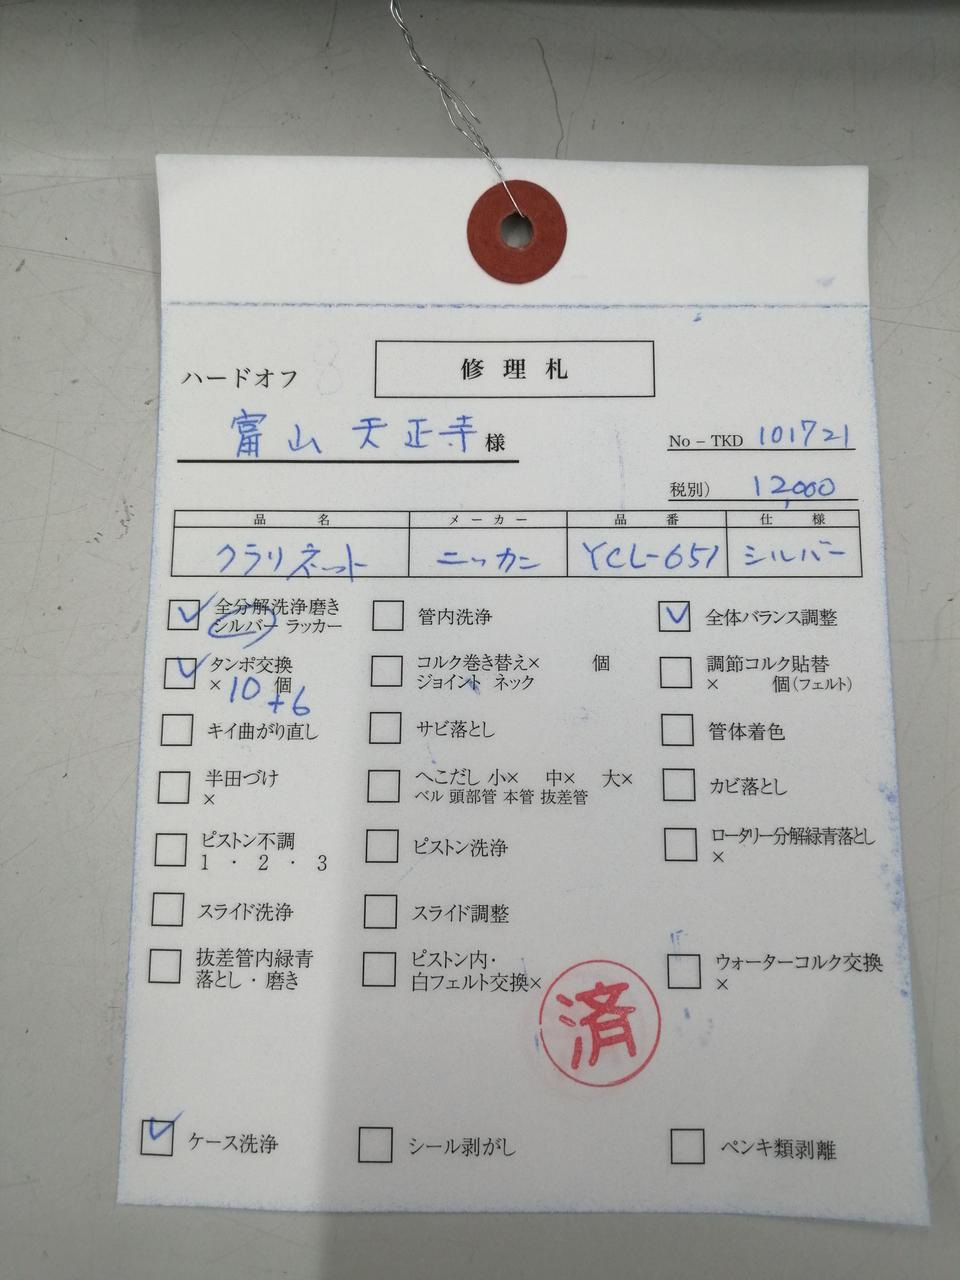 修理札
ハードオフ
富山 天正寺 様
No－TKD 101721
税別） 12,000
品名 メーカー 品番 仕様
クラリネット ニッカン YCL-651 シルバー
全分解洗浄磨き
シルバー ラッカー
管内洗浄
全体バランス調整
タンポ交換
× 10 個
+6
コルク巻き替え× 個
ジョイント ネック
調節コルク貼替
× 個（フェルト）
キイ曲がり直し
サビ落とし
管体着色
半田づけ
×
へこだし 小× 中× 大×
ベル 頭部管 本管 抜差管
カビ落とし
ピストン不調
1 ・ 2 ・ 3
ピストン洗浄
ロータリー分解緑青落とし
×
スライド洗浄
スライド調整
抜差管内緑青
落とし・磨き
ピストン内・
白フェルト交換×
ウォーターコルク交換
×
済
ケース洗浄
シール剥がし
ペンキ類剥離